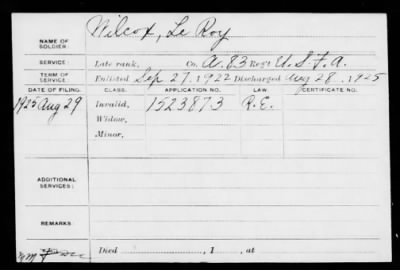 NAME OF SOLDIER: Wilcox, Le Roy
SERVICE: Late rank, Co. A. 83 Reg't U.S.F.A.
TERM OF SERVICE Enlisted Sep 27, 1922 Discharged Aug 28, 1925
DATE OF FILING. CLASS. APPLICATION NO. LAW. CERTIFICATE NO.
1925 Aug 29 Invalid, 1523873 R.E.
Widow,
Minor,
ADDITIONAL SERVICES:
REMARKS:
Died , 1 , at